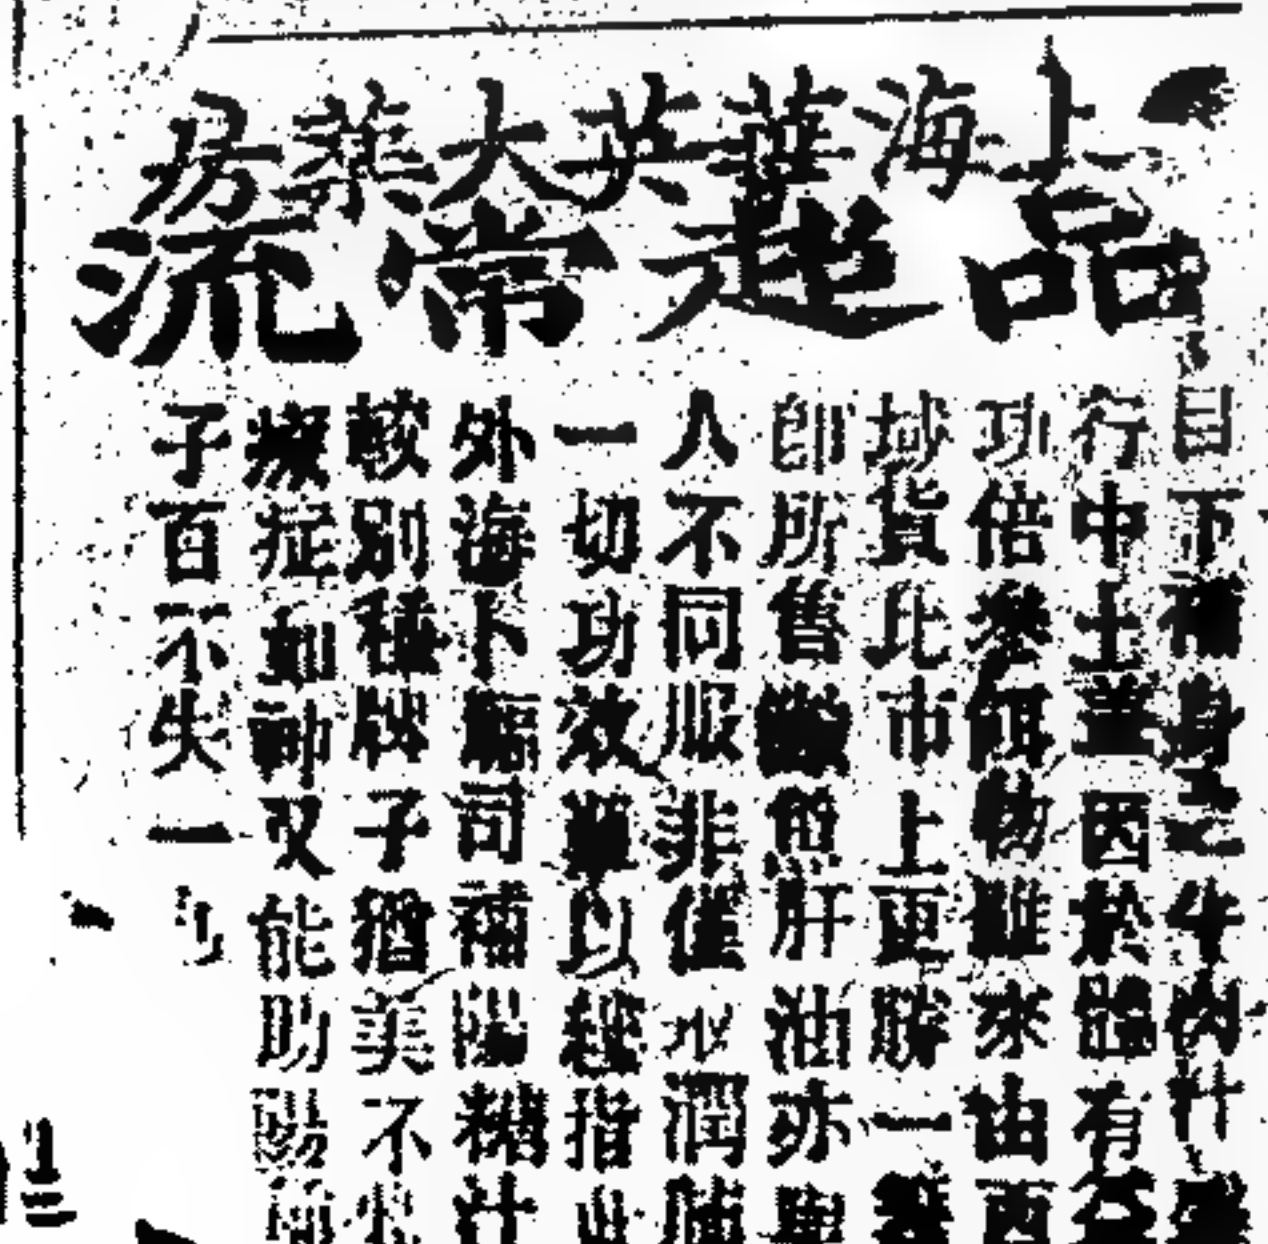 上海華英大藥房
品超常流
目下補身之牛肉汁
行中土蓋因於體有益
功倍參餌物雖來由西
域貨比市上更勝一籌
即所售鰵魚肝油亦與
人不同服非僅水潤肺
一切功效難以越指也
外海卜驅司補陽糖汁
較別種牌子猶美不特
症如神又能助
子百不失一